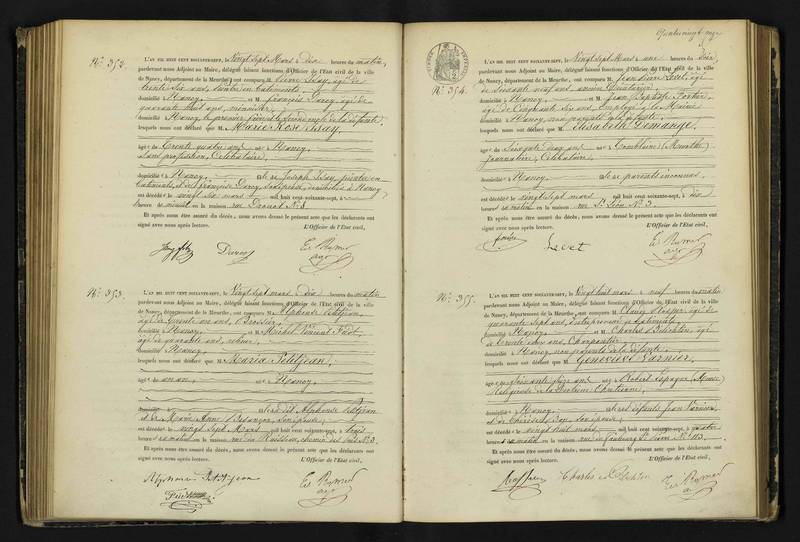 N.° 352.
L'AN MIL HUIT CENT SOIXANTE-SEPT, le Vingt sept Mars à dix heures du matin,
pardevant nous Adjoint au Maire, délégué faisant fonctions d'Officier de l'Etat civil de la ville
de Nancy, département de la Meurthe, ont comparu M. Pierre Isay, âgé de
trente six ans,
domicilié à Nancy, et M. François Darcy, âgé de
quarante huit ans, menuisier,
domicilié à Nancy, le premier frère le second oncle de la défunte
lesquels nous ont déclaré que M Marie Rose Isay,
âgée de Trente quatre ans née à Nancy,
sans profession, Célibataire,
domiciliée à Nancy, fille de Joseph Isay, peintre en
bâtiments, et de Françoise Darcy, domiciliés à Nancy
est décédée le vingt six mars mil huit cent soixante-sept, à
heures de minuit en la maison rue Drouot N.° 8
Et après nous être assuré du décès, nous avons dressé le présent acte que les déclarants ont
signé avec nous après lecture. L'Officier de l'Etat civil,
N.° 353.
L'AN MIL HUIT CENT SOIXANTE-SEPT, le Vingt sept mars à dix heures du matin
pardevant nous Adjoint au Maire, délégué faisant fonctions d'Officier de l'Etat civil de la ville
de Nancy, département de la Meurthe, ont comparu M. Alphonse Petitjean,
âgé de trente un ans,
domicilié à Nancy, et M. Michel Vincent
âgé de quarante ans,
domicilié à Nancy,
lesquels nous ont déclaré que M Maria Petitjean,
âgée de un an, née à Nancy,
domicilié fille du dit Alphonse Petitjean
et de Marie Anne Besançon, son épouse,
est décédée le vingt sept Mars mil huit cent soixante-sept, à trois
heures du matin en la maison rue chemin des N.° 3.
Et après nous être assuré du décès, nous avons dressé le présent acte que les déclarants ont
signé avec nous après lecture. L'Officier de l'Etat civil,
Alphonse Petitjean
N.° 354.
L'AN MIL HUIT CENT SOIXANTE-SEPT, le Vingt sept Mars à une heures du soir,
pardevant nous Adjoint au Maire, délégué faisant fonctions d'Officier de l'Etat civil de la ville
de Nancy, département de la Meurthe, ont comparu M. Jean Pierre Level, âgé
de soixante neuf ans,
domicilié à Nancy, et M. Jean Baptiste Poirier,
âgé de Cinquante six ans, Employé à la Mairie
domicilié à Nancy, non parents de la défunte,
lesquels nous ont déclaré que M Elisabeth Demange,
âgée de Soixante dix ans née à Tomblaine (Meurthe)
journalière, Célibataire,
domiciliée à Nancy, fille de parents inconnus,
est décédée le vingt sept mars mil huit cent soixante-sept, à dix
heures du matin en la maison rue St Léon N.° 3.
Et après nous être assuré du décès, nous avons dressé le présent acte que les déclarants ont
signé avec nous après lecture. L'Officier de l'Etat civil,
N.° 355.
L'AN MIL HUIT CENT SOIXANTE-SEPT, le Vingt huit mars à neuf heures du matin
pardevant nous Adjoint au Maire, délégué faisant fonctions d'Officier de l'Etat civil de la ville
de Nancy, département de la Meurthe, ont comparu M. Prosper, âgé de
quarante sept ans, entrepreneur de bâtiments,
domicilié à Nancy, et M. Charles âgé
de trente deux ans, Charpentier,
domicilié à Nancy, non parents de la défunte,
lesquels nous ont déclaré que M Geneviève Varnier,
âgée de Soixante ans née à Robert Espagne (Meuse)
Religieuse de la Doctrine Chrétienne,
domiciliée à Nancy, fille des défunts Jean Varnier,
et de Thérèse son épouse,
est décédée le vingt huit mars mil huit cent soixante-sept, à quatre
heures du matin en la maison rue du faubourg St Pierre N.° 113.
Et après nous être assuré du décès, nous avons dressé le présent acte que les déclarants ont
signé avec nous après lecture. L'Officier de l'Etat civil,